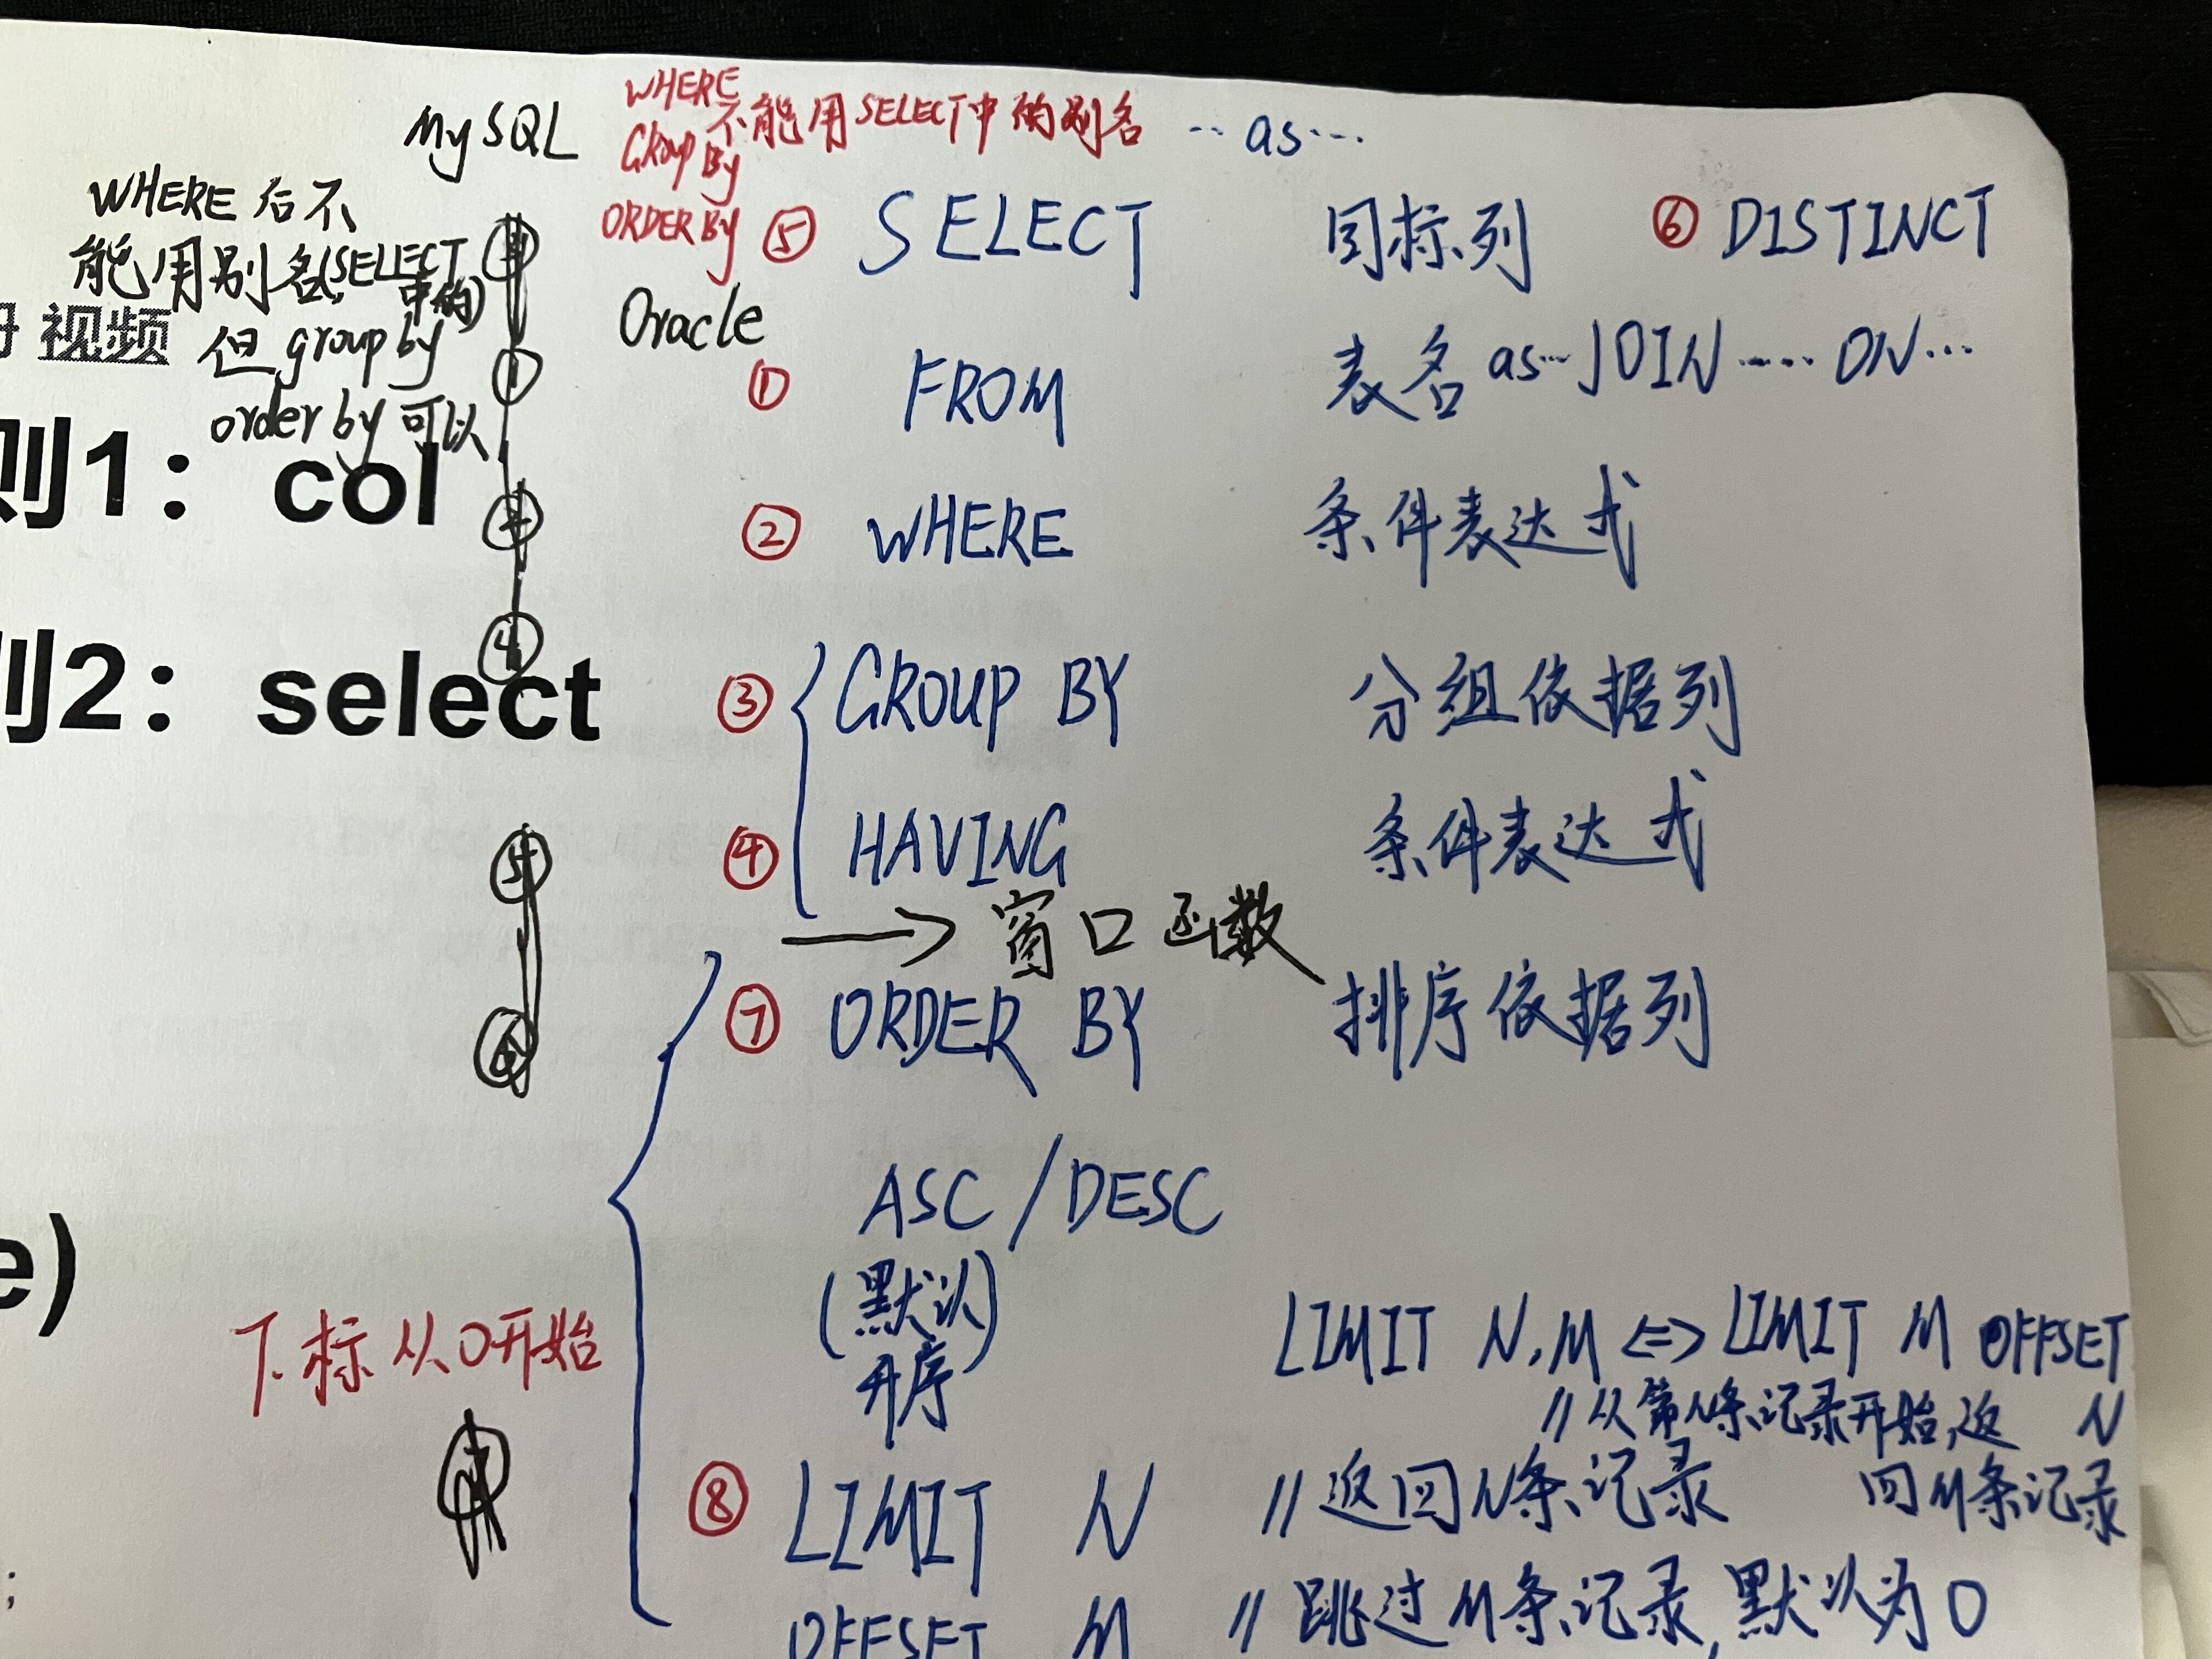 MySQL
WHERE
GROUP BY
ORDER BY
不能用SELECT中的别名
…as…
WHERE后不
能用别名(SELECT
中的)
但group by
order by可以
视频
Oracle
⑤ SELECT 目标列 ⑥ DISTINCT
① FROM 表名 as…JOIN……ON…
② WHERE 条件表达式
③ GROUP BY 分组依据列
④ HAVING 条件表达式
→ 窗口函数
⑦ ORDER BY 排序依据列
ASC / DESC
(默认)
升序
LIMIT N,M <=> LIMIT M OFFSET
N
//从第N条记录开始,返
回M条记录
⑧ LIMIT N //返回N条记录
OFFSET M //跳过M条记录,默认为0
①
④
⑤
⑥
则1：col
则2：select
e)
下标从0开始
;